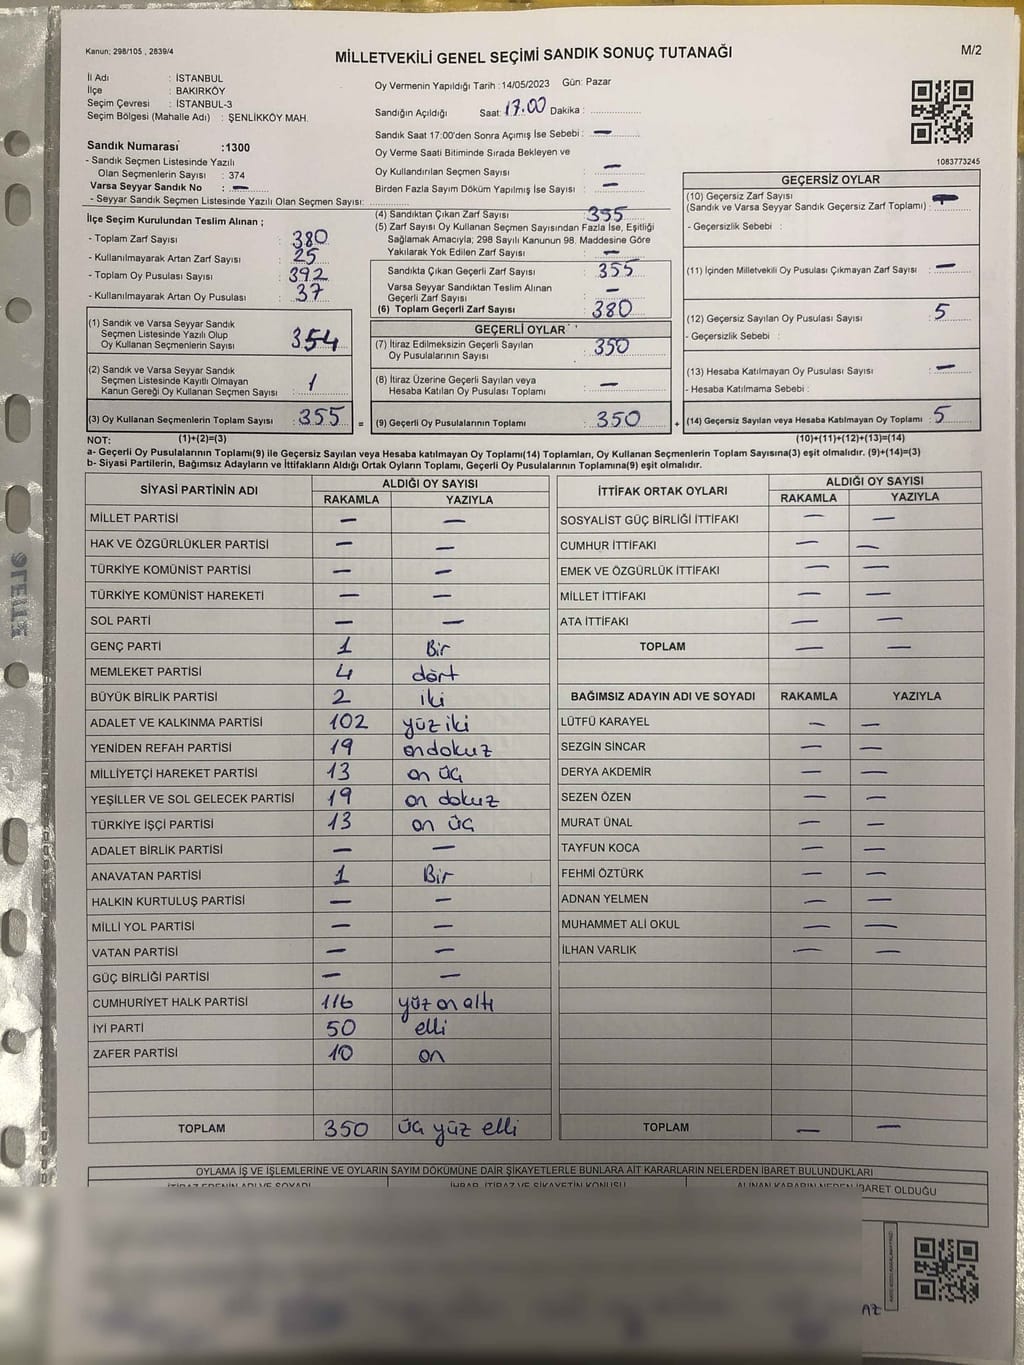 Kanun: 298/105 , 2839/4
MİLLETVEKİLİ GENEL SEÇİMİ SANDIK SONUÇ TUTANAĞI
M/2
İl Adı : İSTANBUL
İlçe : BAKIRKÖY
Seçim Çevresi : İSTANBUL-3
Seçim Bölgesi (Mahalle Adı) : ŞENLİKKÖY MAH.
Sandık Numarası :1300
- Sandık Seçmen Listesinde Yazılı
Olan Seçmenlerin Sayısı : 374
Varsa Seyyar Sandık No : —
- Seyyar Sandık Seçmen Listesinde Yazılı Olan Seçmen Sayısı:
Oy Vermenin Yapıldığı Tarih :14/05/2023 Gün: Pazar
Sandığın Açıldığı Saat: 17.00 Dakika :
Sandık Saat 17:00'den Sonra Açımış İse Sebebi : —
Oy Verme Saati Bitiminde Sırada Bekleyen ve
Oy Kullandırılan Seçmen Sayısı —
Birden Fazla Sayım Döküm Yapılmış İse Sayısı —
1083773245
İlçe Seçim Kurulundan Teslim Alınan ;
- Toplam Zarf Sayısı : 380
- Kullanılmayarak Artan Zarf Sayısı : 25
- Toplam Oy Pusulası Sayısı : 392
- Kullanılmayarak Artan Oy Pusulası : 37
(1) Sandık ve Varsa Seyyar Sandık
Seçmen Listesinde Yazılı Olup
Oy Kullanan Seçmenlerin Sayısı : 354
(2) Sandık ve Varsa Seyyar Sandık
Seçmen Listesinde Kayıtlı Olmayan
Kanun Gereği Oy Kullanan Seçmen Sayısı : 1
(3) Oy Kullanan Seçmenlerin Toplam Sayısı : 355 =
(4) Sandıktan Çıkan Zarf Sayısı : 355
(5) Zarf Sayısı Oy Kullanan Seçmen Sayısından Fazla İse, Eşitliği
Sağlamak Amacıyla; 298 Sayılı Kanunun 98. Maddesine Göre
Yakılarak Yok Edilen Zarf Sayısı : —
Sandıkta Çıkan Geçerli Zarf Sayısı : 355
Varsa Seyyar Sandıktan Teslim Alınan
Geçerli Zarf Sayısı : —
(6) Toplam Geçerli Zarf Sayısı : 380
GEÇERLİ OYLAR
(7) İtiraz Edilmeksizin Geçerli Sayılan
Oy Pusulalarının Sayısı : 350
(8) İtiraz Üzerine Geçerli Sayılan veya
Hesaba Katılan Oy Pusulası Toplamı : —
(9) Geçerli Oy Pusulalarının Toplamı : 350 +
GEÇERSİZ OYLAR
(10) Geçersiz Zarf Sayısı
(Sandık ve Varsa Seyyar Sandık Geçersiz Zarf Toplamı) : —
- Geçersizlik Sebebi :
(11) İçinden Milletvekili Oy Pusulası Çıkmayan Zarf Sayısı : —
(12) Geçersiz Sayılan Oy Pusulası Sayısı : 5
- Geçersizlik Sebebi :
(13) Hesaba Katılmayan Oy Pusulası Sayısı : —
- Hesaba Katılmama Sebebi :
(14) Geçersiz Sayılan veya Hesaba Katılmayan Oy Toplamı : 5
NOT: (1)+(2)=(3)
(10)+(11)+(12)+(13)=(14)
a- Geçerli Oy Pusulalarının Toplamı(9) ile Geçersiz Sayılan veya Hesaba katılmayan Oy Toplamı(14) Toplamları, Oy Kullanan Seçmenlerin Toplam Sayısına(3) eşit olmalıdır. (9)+(14)=(3)
b- Siyasi Partilerin, Bağımsız Adayların ve İttifakların Aldığı Ortak Oyların Toplamı, Geçerli Oy Pusulalarının Toplamına(9) eşit olmalıdır.
SİYASİ PARTİNİN ADI ALDIĞI OY SAYISI
RAKAMLA YAZIYLA
MİLLET PARTİSİ — —
HAK VE ÖZGÜRLÜKLER PARTİSİ — —
TÜRKİYE KOMÜNİST PARTİSİ — —
TÜRKİYE KOMÜNİST HAREKETİ — —
SOL PARTİ — —
GENÇ PARTİ 1 Bir
MEMLEKET PARTİSİ 4 dört
BÜYÜK BİRLİK PARTİSİ 2 iki
ADALET VE KALKINMA PARTİSİ 102 yüz iki
YENİDEN REFAH PARTİSİ 19 ondokuz
MİLLİYETÇİ HAREKET PARTİSİ 13 on üç
YEŞİLLER VE SOL GELECEK PARTİSİ 19 on dokuz
TÜRKİYE İŞÇİ PARTİSİ 13 on üç
ADALET BİRLİK PARTİSİ — —
ANAVATAN PARTİSİ 1 Bir
HALKIN KURTULUŞ PARTİSİ — —
MİLLİ YOL PARTİSİ — —
VATAN PARTİSİ — —
GÜÇ BİRLİĞİ PARTİSİ — —
CUMHURİYET HALK PARTİSİ 116 yüz on altı
İYİ PARTİ 50 elli
ZAFER PARTİSİ 10 on
TOPLAM 350 üç yüz elli
İTTİFAK ORTAK OYLARI ALDIĞI OY SAYISI
RAKAMLA YAZIYLA
SOSYALİST GÜÇ BİRLİĞİ İTTİFAKI — —
CUMHUR İTTİFAKI — —
EMEK VE ÖZGÜRLÜK İTTİFAKI — —
MİLLET İTTİFAKI — —
ATA İTTİFAKI — —
TOPLAM — —
BAĞIMSIZ ADAYIN ADI VE SOYADI RAKAMLA YAZIYLA
LÜTFÜ KARAYEL — —
SEZGİN SİNCAR — —
DERYA AKDEMİR — —
SEZEN ÖZEN — —
MURAT ÜNAL — —
TAYFUN KOCA — —
FEHMİ ÖZTÜRK — —
ADNAN YELMEN — —
MUHAMMET ALİ OKUL — —
İLHAN VARLIK — —
TOPLAM — —
OYLAMA İŞ VE İŞLEMLERİNE VE OYLARIN SAYIM DÖKÜMÜNE DAİR ŞİKAYETLERLE BUNLARA AİT KARARLARIN NELERDEN İBARET BULUNDUKLARI
İTİRAZ EDENİN ADI VE SOYADI İHBAR, İTİRAZ VE ŞİKAYETİN KONUSU ALINAN KARARIN NEDEN İBARET OLDUĞU